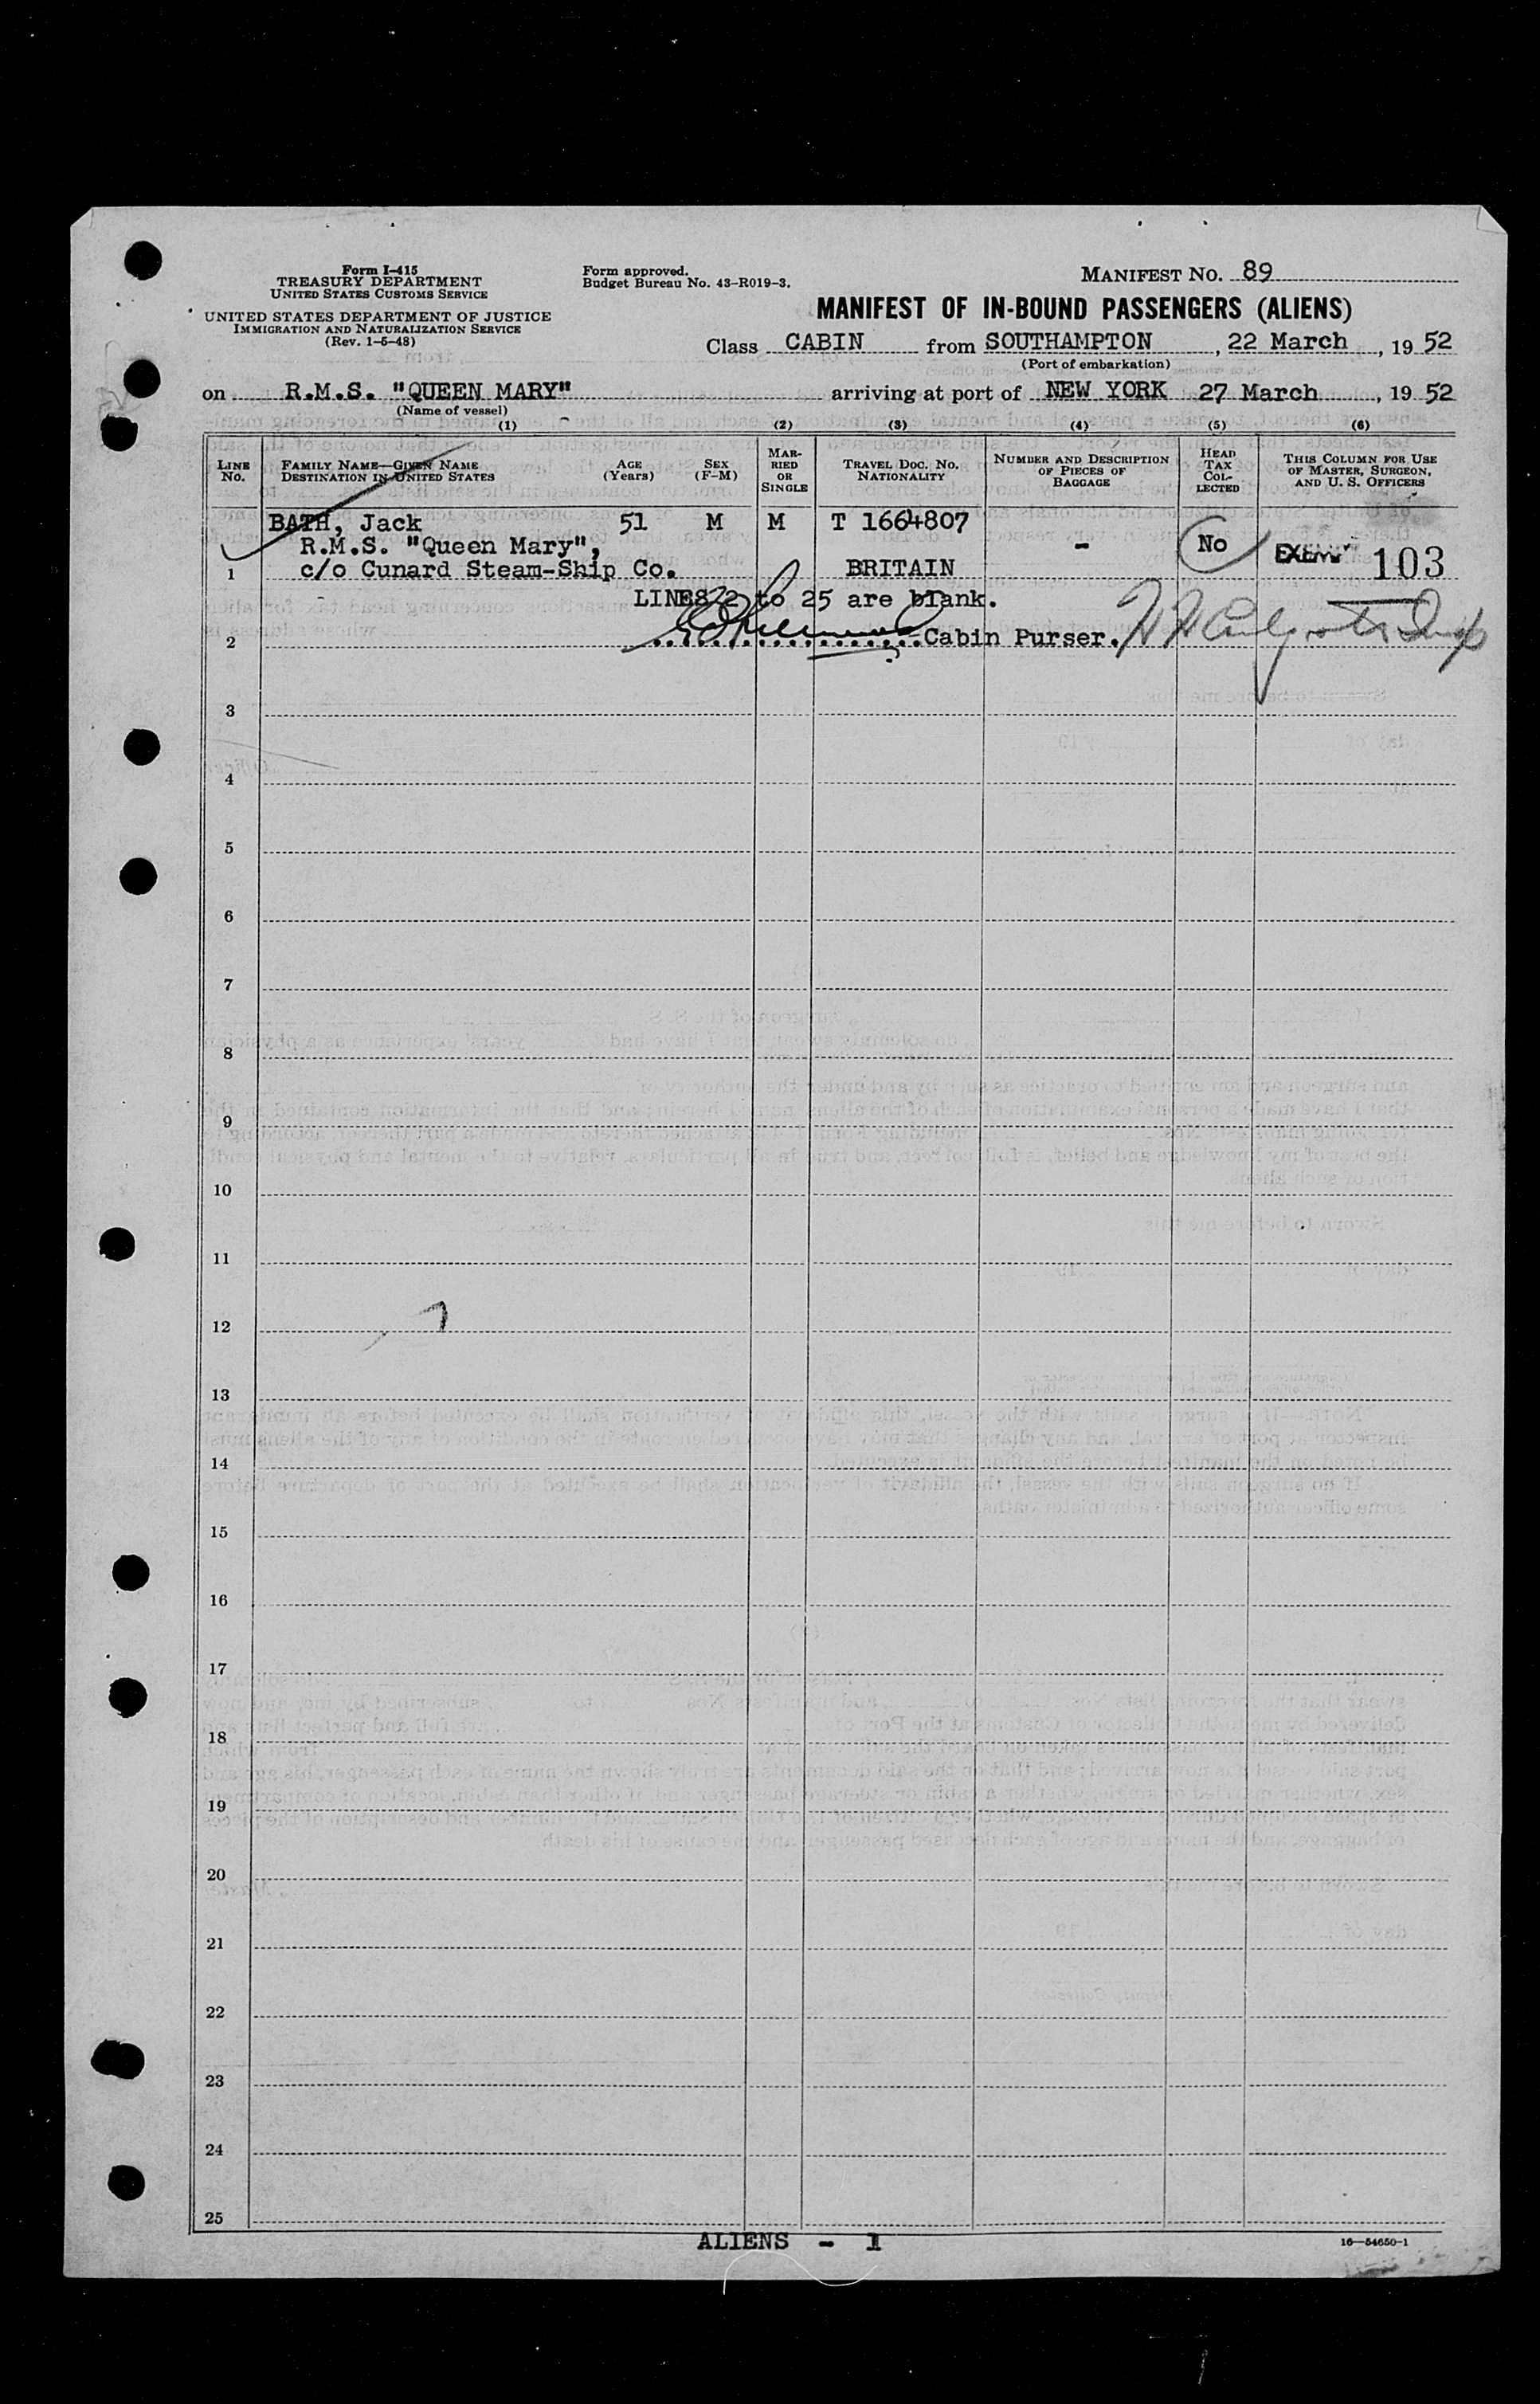 Form I-415
TREASURY DEPARTMENT
UNITED STATES CUSTOMS SERVICE
UNITED STATES DEPARTMENT OF JUSTICE
IMMIGRATION AND NATURALIZATION SERVICE
(Rev. 1-5-48)
Form approved.
Budget Bureau No. 43-R019-3.
MANIFEST NO. 89
MANIFEST OF IN-BOUND PASSENGERS (ALIENS)
Class CABIN from SOUTHAMPTON, 22 March, 19 52
(Port of embarkation)
on R.M.S. "QUEEN MARY" arriving at port of NEW YORK 27 March, 19 52
(Name of vessel)
(1) (2) (3) (4) (5) (6)
LINE NO.
FAMILY NAME—GIVEN NAME
DESTINATION IN UNITED STATES
AGE (Years)
SEX (F-M)
MARRIED OR SINGLE
TRAVEL DOC. NO.
NATIONALITY
NUMBER AND DESCRIPTION OF PIECES OF BAGGAGE
HEAD TAX COLLECTED
THIS COLUMN FOR USE OF MASTER, SURGEON, AND U. S. OFFICERS
BATH, Jack 51 M M T 1664807
R.M.S. "Queen Mary", - No EXEMPT 103
1 c/o Cunard Steam-Ship Co. BRITAIN
LINES 2 to 25 are blank.
2 Cabin Purser.
3
4
5
6
7
8
9
10
11
12
13
14
15
16
17
18
19
20
21
22
23
24
25
ALIENS - 1
16—54650-1